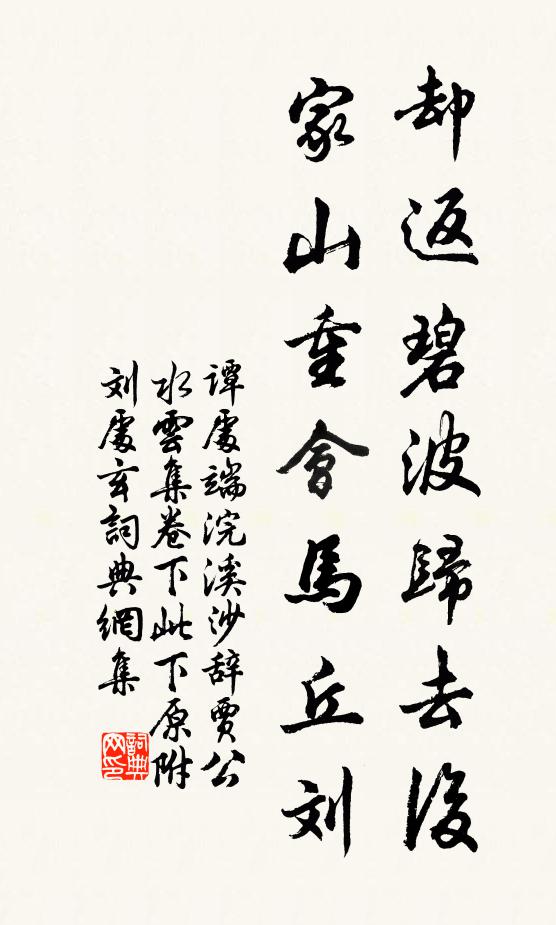 却返碧波歸去後
家山重會馬丘刘
谭處端浣溪沙辞賈公
水雲集卷下此下原附
刘處玄詞典網集
詞典網印